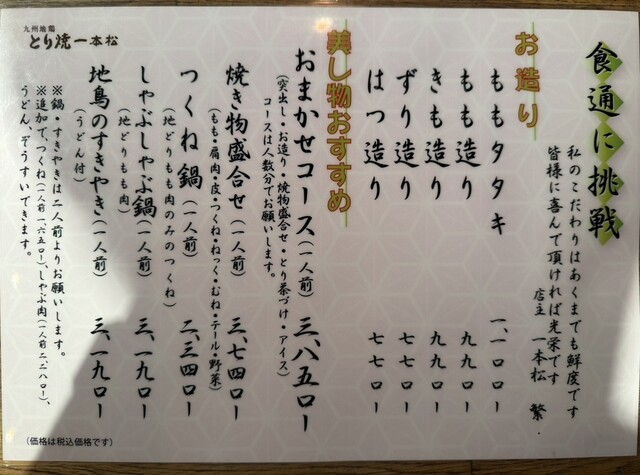 食通に挑戦
私のこだわりはあくまでも鮮度です
皆様に喜んで頂ければ光栄です
店主 一本松 繁
お造り
ももタタキ 一、一〇〇ー
もも造り 九九〇ー
きも造り 九九〇ー
ずり造り 七七〇ー
はつ造り 七七〇ー
美し物おすすめ
おまかせコース(一人前) 三、八五〇ー
(突出し・お造り・焼物盛合せ・とり茶づけ・アイス)
コースは人数分でお願いします。
焼き物盛合せ(一人前) 三、七四〇ー
(もも・肩肉・皮・つくね・ねっく・むね・テール・野菜)
つくね鍋(一人前) 二、三四〇ー
(地どりもも肉のみのつくね)
しゃぶしゃぶ鍋(一人前) 三、一九〇ー
(地どりもも肉)
地鳥のすきやき(一人前) 三、一九〇ー
(うどん付)
※鍋・すきやきは二人前よりお願いします。
※追加で、つくね(一人前一、六五〇ー)、しゃぶ肉(一人前二、二八〇ー)、
うどん、ぞうすいできます。
九州地鶏
とり焼一本松
(価格は税込価格です)